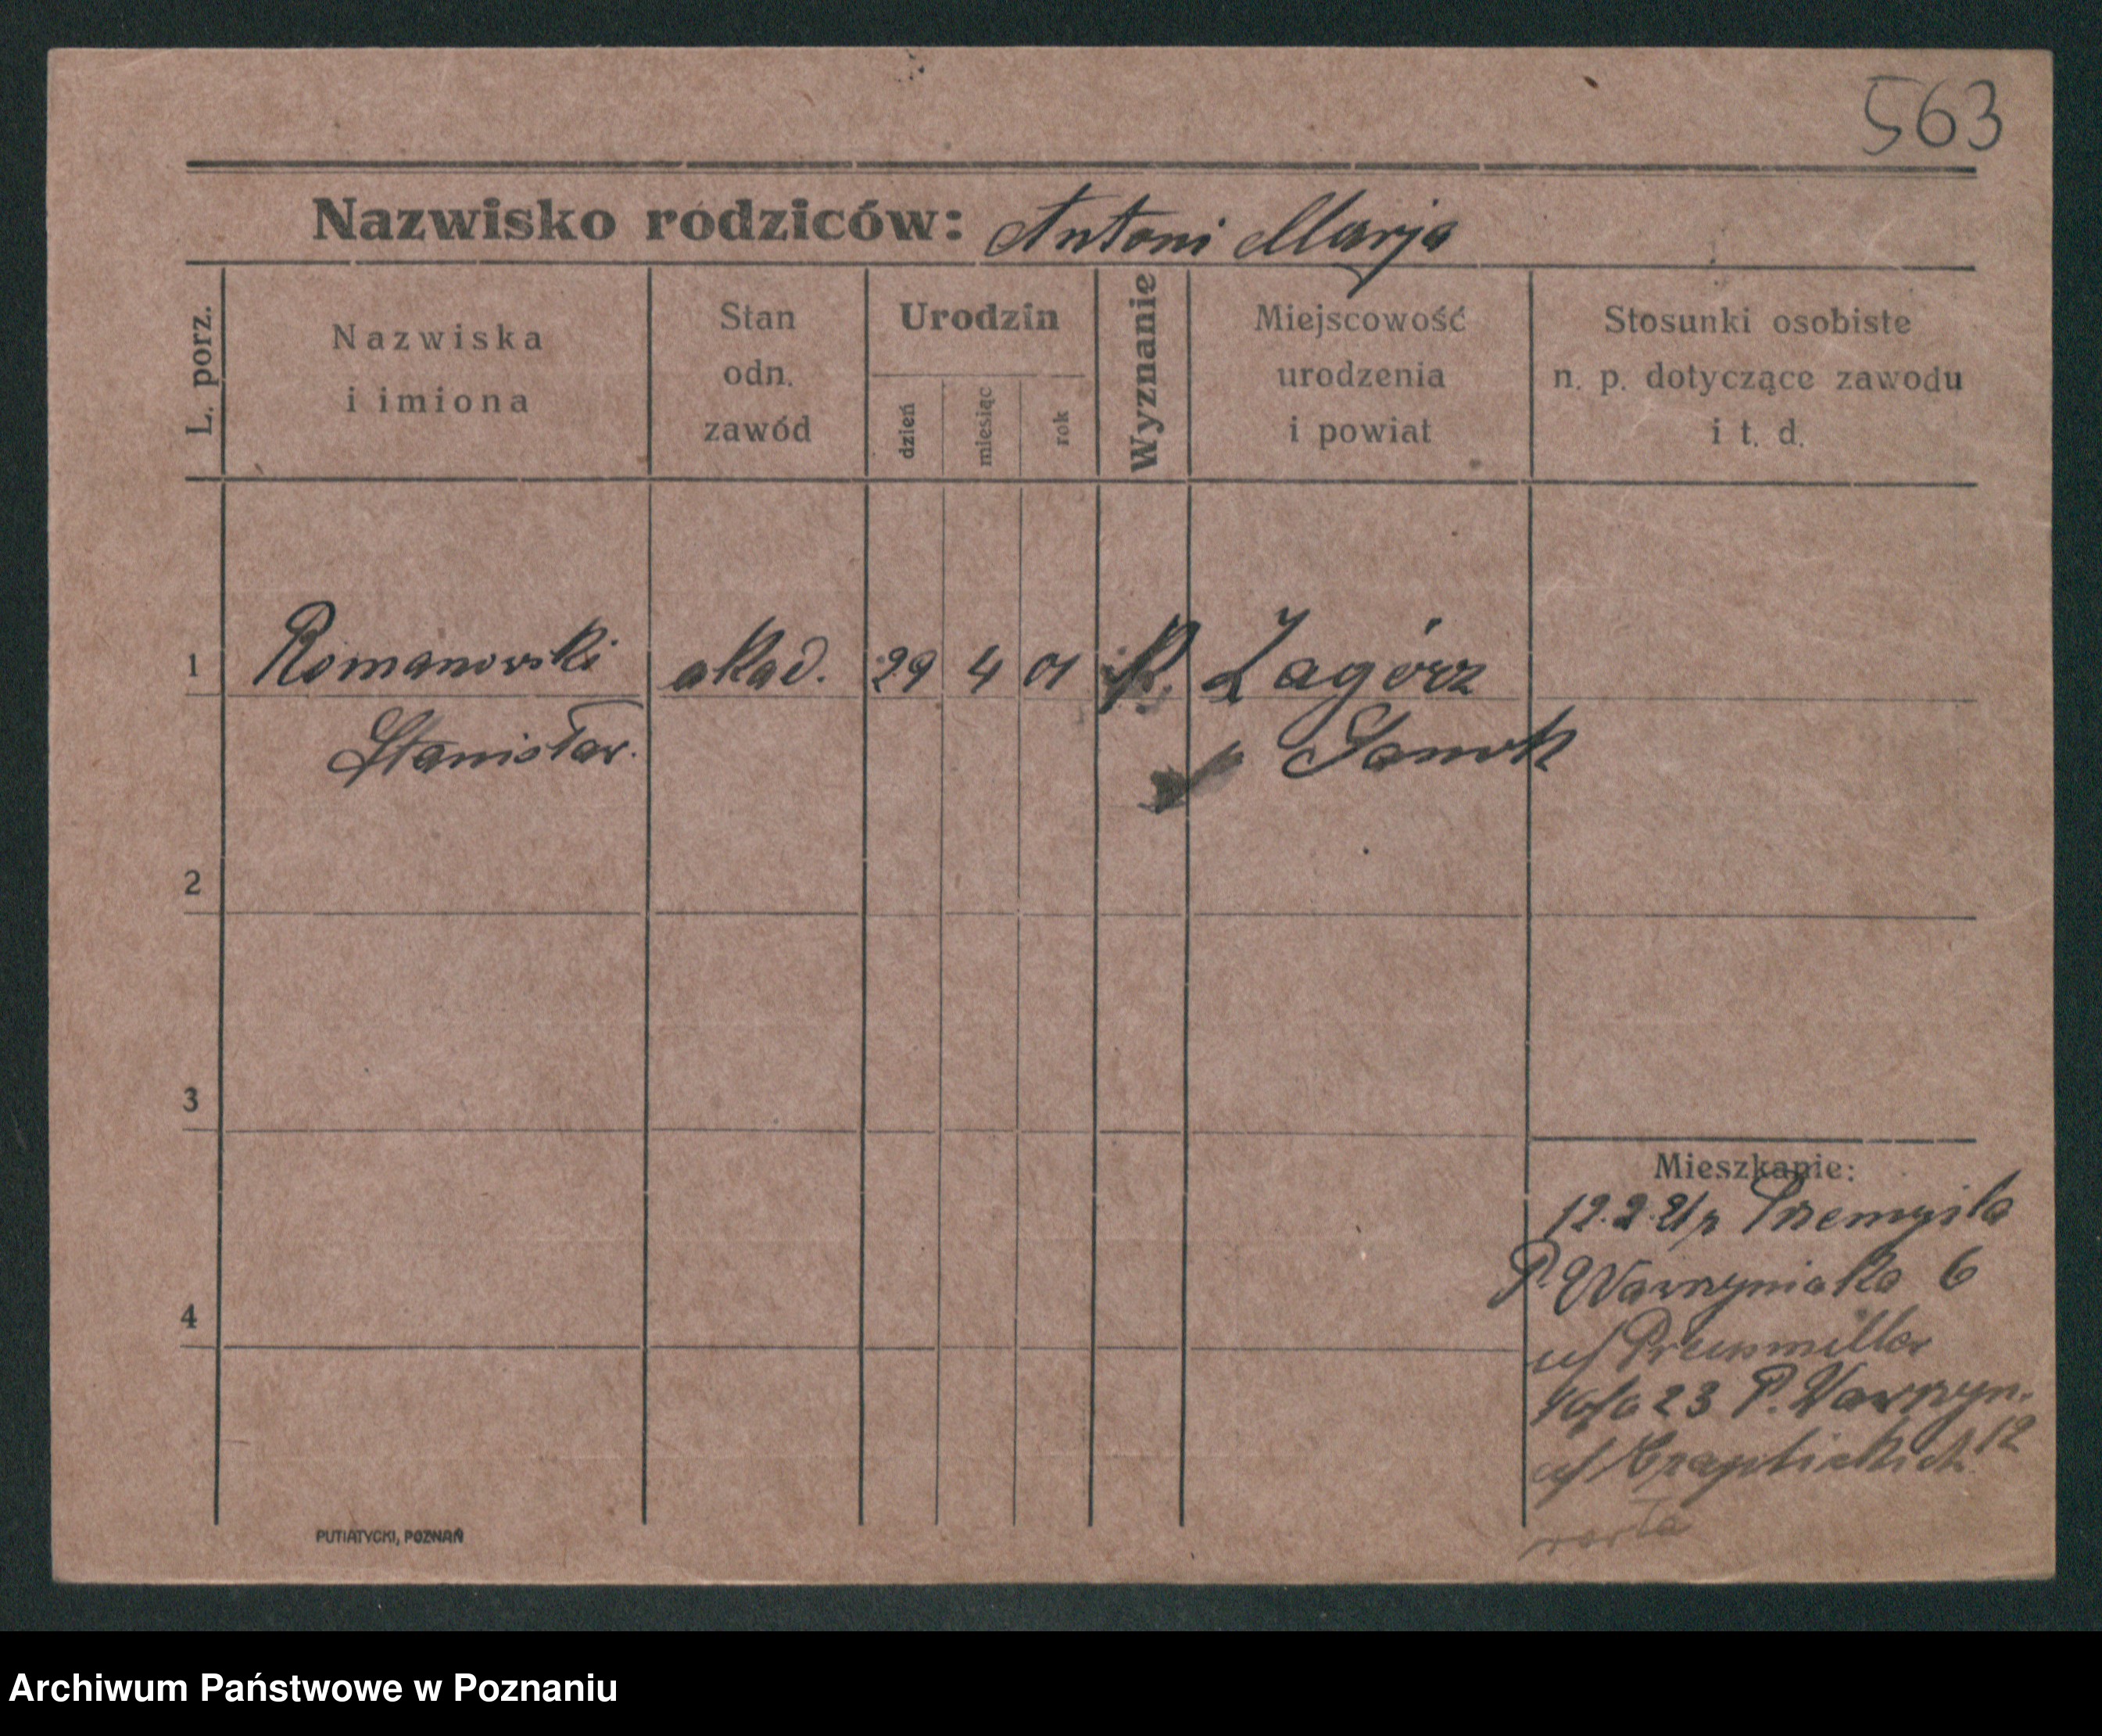 563
Nazwisko rodziców: Antoni Marja
L. porz.
Nazwiska
i imiona
Stan
odn.
zawód
Urodzin
dzień
miesiąc
rok
Wyznanie
Miejscowość
urodzenia
i powiat
Stosunki osobiste
n. p. dotyczące zawodu
i t. d.
1 Romanowski akad. 29 4 01 k. Zagórz
Stanisław. Sanok
2
3
4
Mieszkanie:
12.2.21 z Przemyśla
P. Wawrzyniaka 6
23 P. Wawrzyn.
12
warta
PUTIATYCKI, POZNAŃ
Archiwum Państwowe w Poznaniu